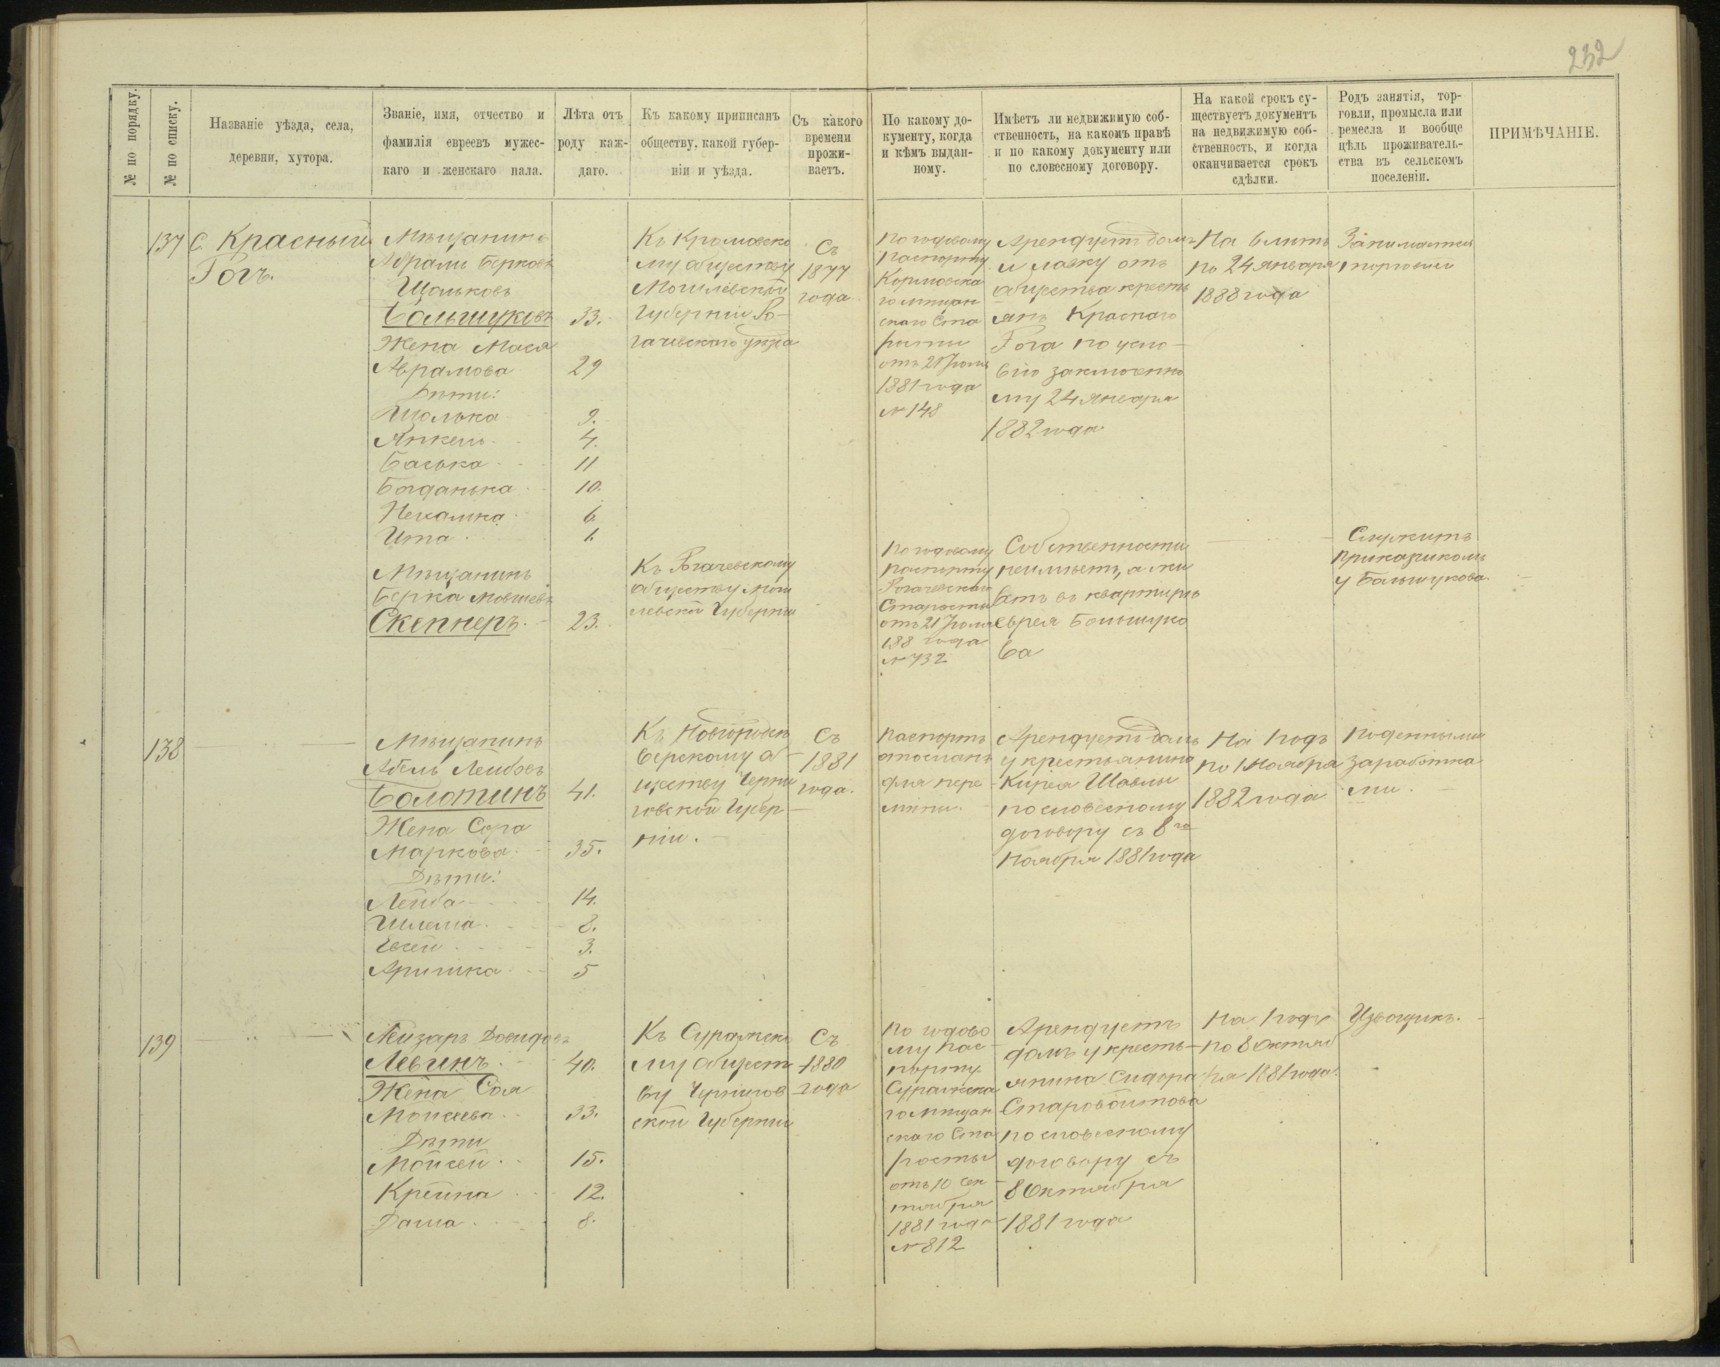 232
№ по порядку.
№ по списку.
Названіе уѣзда, села,
деревни, хутора.
Званіе, имя, отчество и
фамилія евреевъ мужес-
каго и женскаго пала.
Лѣта отъ
роду каж-
даго.
Къ какому приписанъ
обществу, какой губер-
ніи и уѣзда.
Съ какого
времени
прожи-
ваетъ.
По какому до-
кументу, когда
и кѣмъ выдан-
ному.
Имѣетъ ли недвижимую соб-
ственность, на какомъ правѣ
и по какому документу или
по словесному договору.
На какой срокъ су-
ществуетъ документъ
на недвижимую соб-
ственность, и когда
оканчивается срокъ
сдѣлки.
Родъ занятія, тор-
говли, промысла или
ремесла и вообще
цѣль проживатель-
ства въ сельскомъ
поселеніи.
ПРИМѢЧАНІЕ.
137
С. Красный
Рогъ.
Мѣщанинъ
Абрамъ Берковъ
Шольковъ
Большуковъ 33.
Жена Мася
Абрамова 29
Дѣти:
Шолька 9.
Янкель 4.
Баська 11
Богданька 10.
Нехамка 6
Ита 1.
Къ Кромовско
му обществу
Могилевской
Губерніи Ро-
гачевскаго уѣзда
Съ
1877
года.
По годовому
паспорту
го мѣщан
скаго Ста
росты
отъ 21 Іюля
1881 года
№ 148
Арендуетъ домъ
и лавку отъ
общества кресть
янъ Краснаго
Рога по усло-
вію заключенно
му 24 января
1882 года
На 6 лѣтъ
по 24 января
1888 года
Занимается
торговлей
Мѣщанинъ
Берка Мовшевъ
Скепнеръ. 23.
Къ Рогачевскому
обществу Моги
левской Губерніи
По годовому
паспорту
Рогачевской
Старосты
отъ 21 Іюля
188 года
№ 732
Собственности
неимѣетъ, а жи
ветъ въ квартирѣ
еврея Большуко
ва
Служитъ
прикащикомъ
у Большукова.
138
Мѣщанинъ
Абель Лейбовъ
Болотинъ 41.
Жена Сора
Маркова. 35.
Дѣти:
Лейба 14.
Шлема. 8.
Евсей 3.
Аришка 5
Къ Новгородсѣ
верскому об-
ществу Черни
говской Губер
ніи.
Съ
1881
года.
Паспортъ
отосланъ
для пере
мѣны.
Арендуетъ домъ
у крестьянина
Кирея Шавлы
по словесному
договору съ 8го
Ноября 1881 года
На 1 годъ
по 1 Ноября
1882 года
Поденными
заработка
ми.
139
Лейзаръ Довидовъ
Левинъ. 40.
Жена Сая
Моисеева 33.
Дѣти
Мойсей. 15.
Крейна 12.
Даша 8.
Къ Суражско
му общест
ву Чернигов
ской Губерніи
Съ
1880
года
По годово
му пас-
порту
Суражска
го мѣщан
скаго Ста
росты
отъ 10 Сен
тября
1881 года
№ 812
Арендуетъ
домъ у кресть-
янина Сидора
Старовойтова
по словесному
договору съ
8 Октября
1881 года
На 1 годъ
по 8 Октяб
ря 1881 года.
Извощикъ.